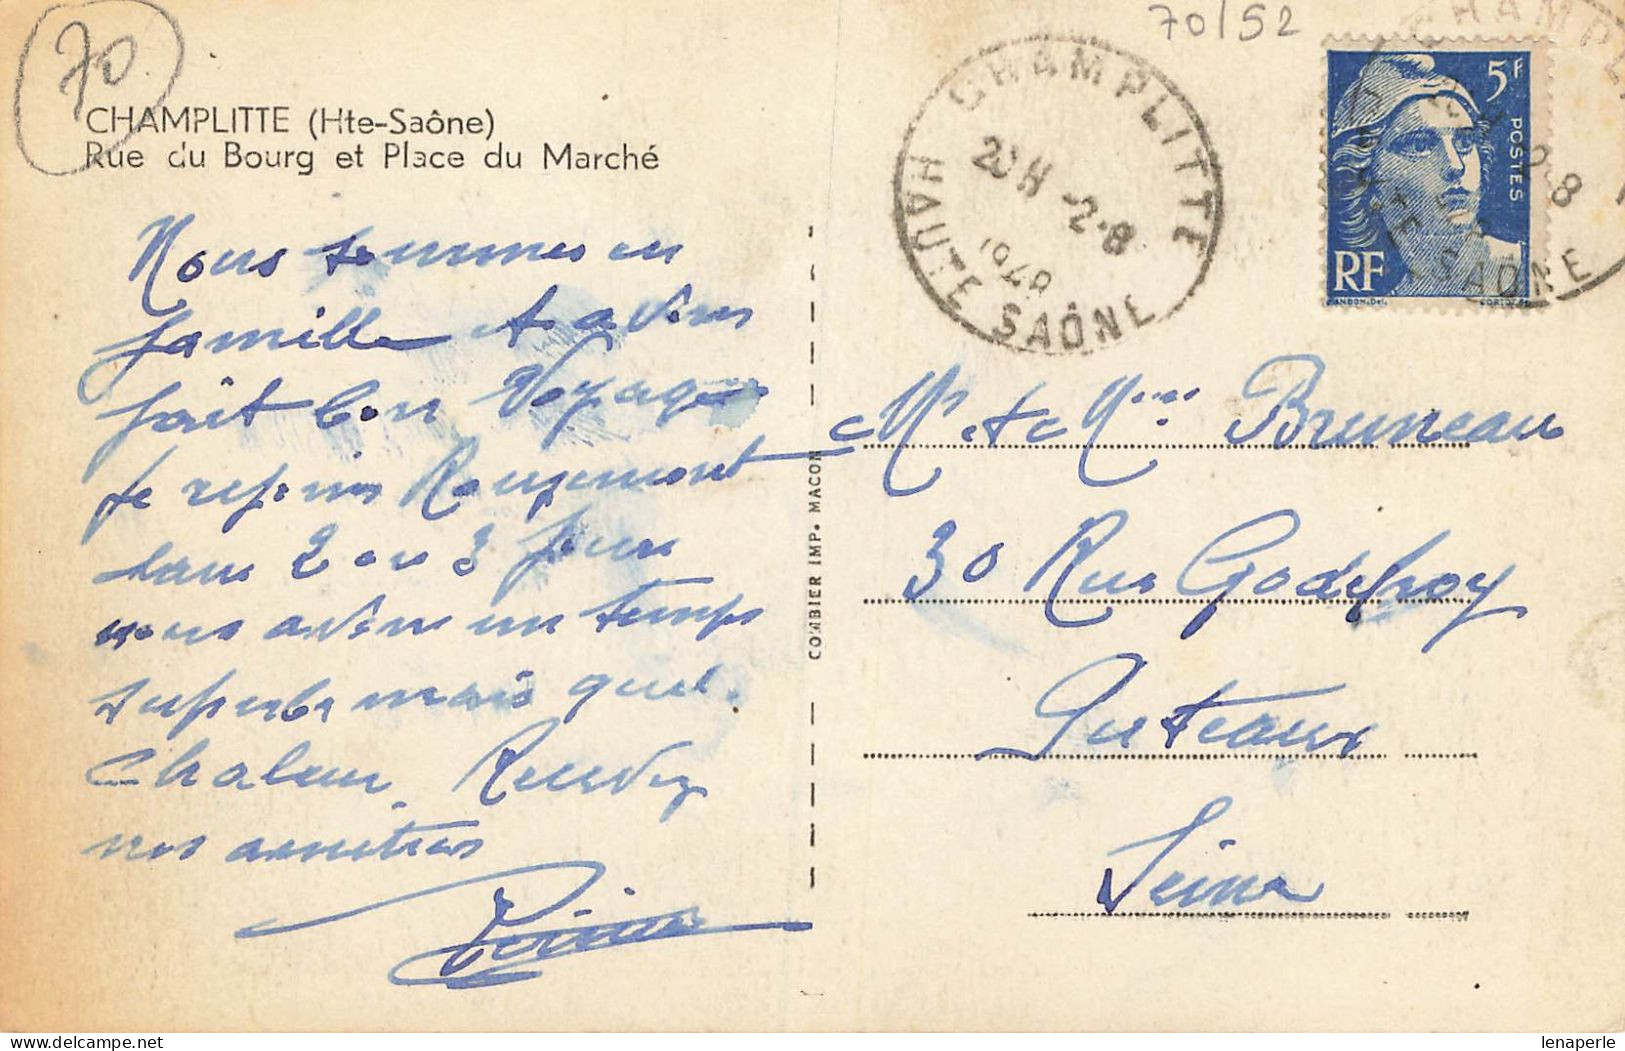 70
70/52
CHAMPLITTE (Hte-Saône)
Rue du Bourg et Place du Marché
CHAMPLITTE
20H -2-8
1949
HAUTE SAÔNE
5F
POSTES
RF
SAÔNE
Nous sommes en
famille et avons
fait bon Voyage
Je rejoins Rougemont
dans 2 ou 3 jours
nous avons un temps
superbe mais quel.
Chaleur. Recevez
nos amitiés
COMBIER IMP. MACON
Mr et Mme Bruneau
30 Rue Godefroy
Puteaux
Seine
lenaperle